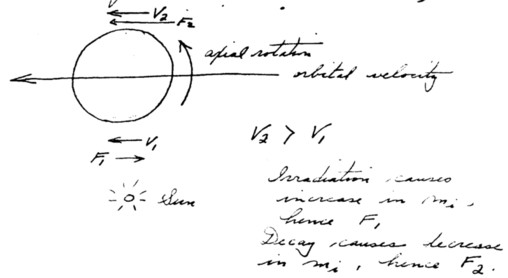 V₂
F₂
axial rotation
orbital velocity
V₁
F₁
V₂ > V₁
Sun
Irradiation causes
increase in mᵢ,
hence F₁
Decay causes decrease
in mᵢ, hence F₂.